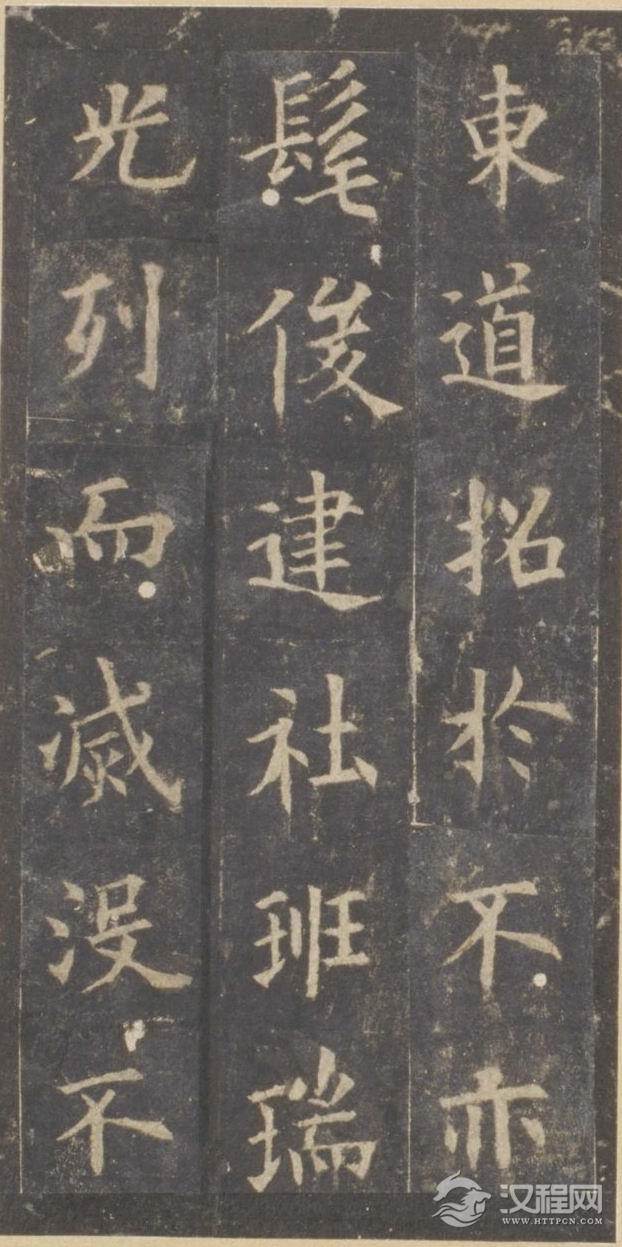 東道招於不亦
髦俊建社班瑞
光列而滅没不
汉程网
WWW.HTTPCN.COM